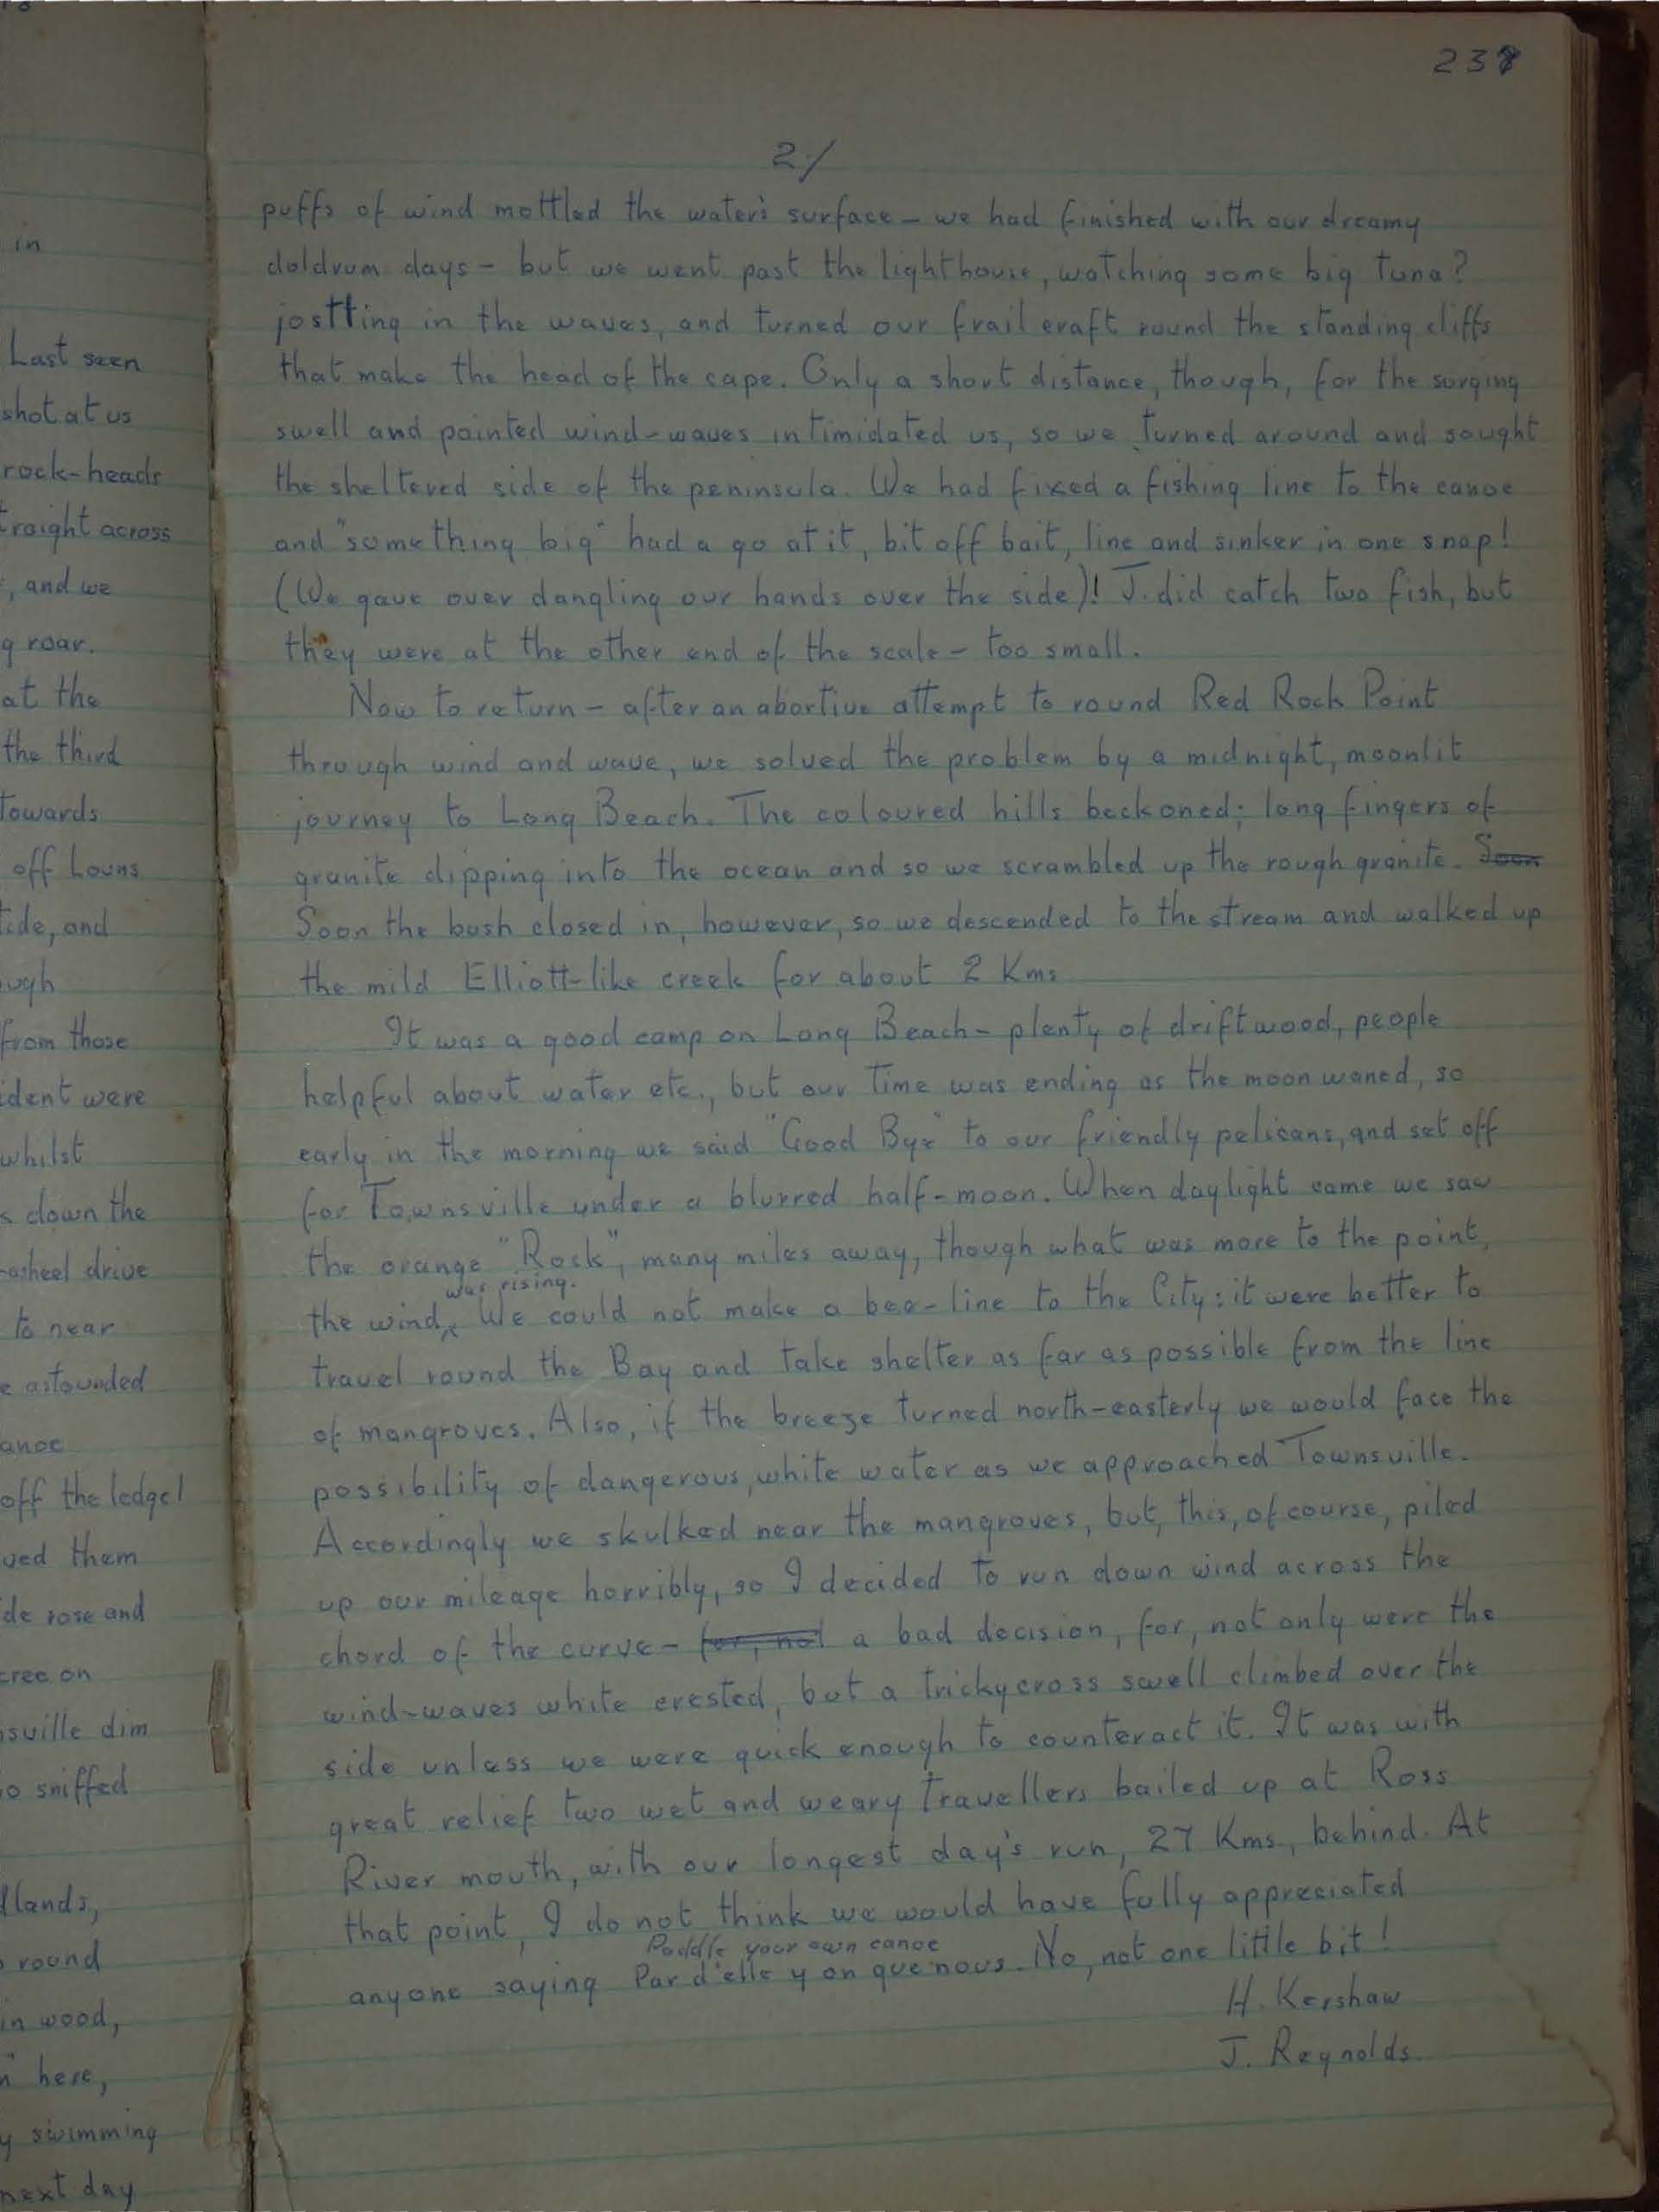 238
2/
puffs of wind mottled the water's surface – we had finished with our dreamy
doldrum days – but we went past the lighthouse, watching some big tuna?
jostling in the waves, and turned our frail craft round the standing cliffs
that make the head of the cape. Only a short distance, though, for the surging
swell and pointed wind-waves intimidated us, so we turned around and sought
the sheltered side of the peninsula. We had fixed a fishing line to the canoe
and "something big" had a go at it, bit off bait, line and sinker in one snap!
(We gave over dangling our hands over the side)! J. did catch two fish, but
they were at the other end of the scale – too small.
Now to return – after an abortive attempt to round Red Rock Point
through wind and wave, we solved the problem by a midnight, moonlit
journey to Long Beach. The coloured hills beckoned; long fingers of
granite dipping into the ocean and so we scrambled up the rough granite. Soon
Soon the bush closed in, however, so we descended to the stream and walked up
the mild Elliott-like creek for about 2 Kms
It was a good camp on Long Beach – plenty of driftwood, people
helpful about water etc., but our time was ending as the moon waned, so
early in the morning we said "Good Bye" to our friendly pelicans, and set off
for Townsville under a blurred half-moon. When daylight came we saw
the orange "Rock", many miles away, though what was more to the point,
was rising.
the wind ‸ We could not make a bee-line to the City: it were better to
travel round the Bay and take shelter as far as possible from the line
of mangroves. Also, if the breeze turned north-easterly we would face the
possibility of dangerous, white water as we approached Townsville.
Accordingly we skulked near the mangroves, but, this, of course, piled
up our mileage horribly, so I decided to run down wind across the
chord of the curve – for, not a bad decision, for, not only were the
wind-waves white crested, but a tricky cross swell climbed over the
side unless we were quick enough to counteract it. It was with
great relief two wet and weary travellers bailed up at Ross
River mouth, with our longest day's run, 27 Kms., behind. At
that point, I do not think we would have fully appreciated
Paddle your own canoe
anyone saying Par d'elle y on que nous. No, not one little bit!
H. Kershaw
J. Reynolds.
in
Last seen
shot at us
rock-heads
traight across
, and we
g roar.
at the
the third
towards
off Louns
tide, and
ough
from those
ident were
whilst
s down the
-wheel drive
to near
e astounded
anoe
off the ledge!
ved them
ide rose and
cree on
nsville dim
o sniffed
dlands,
round
in wood,
n" here,
y swimming
next day